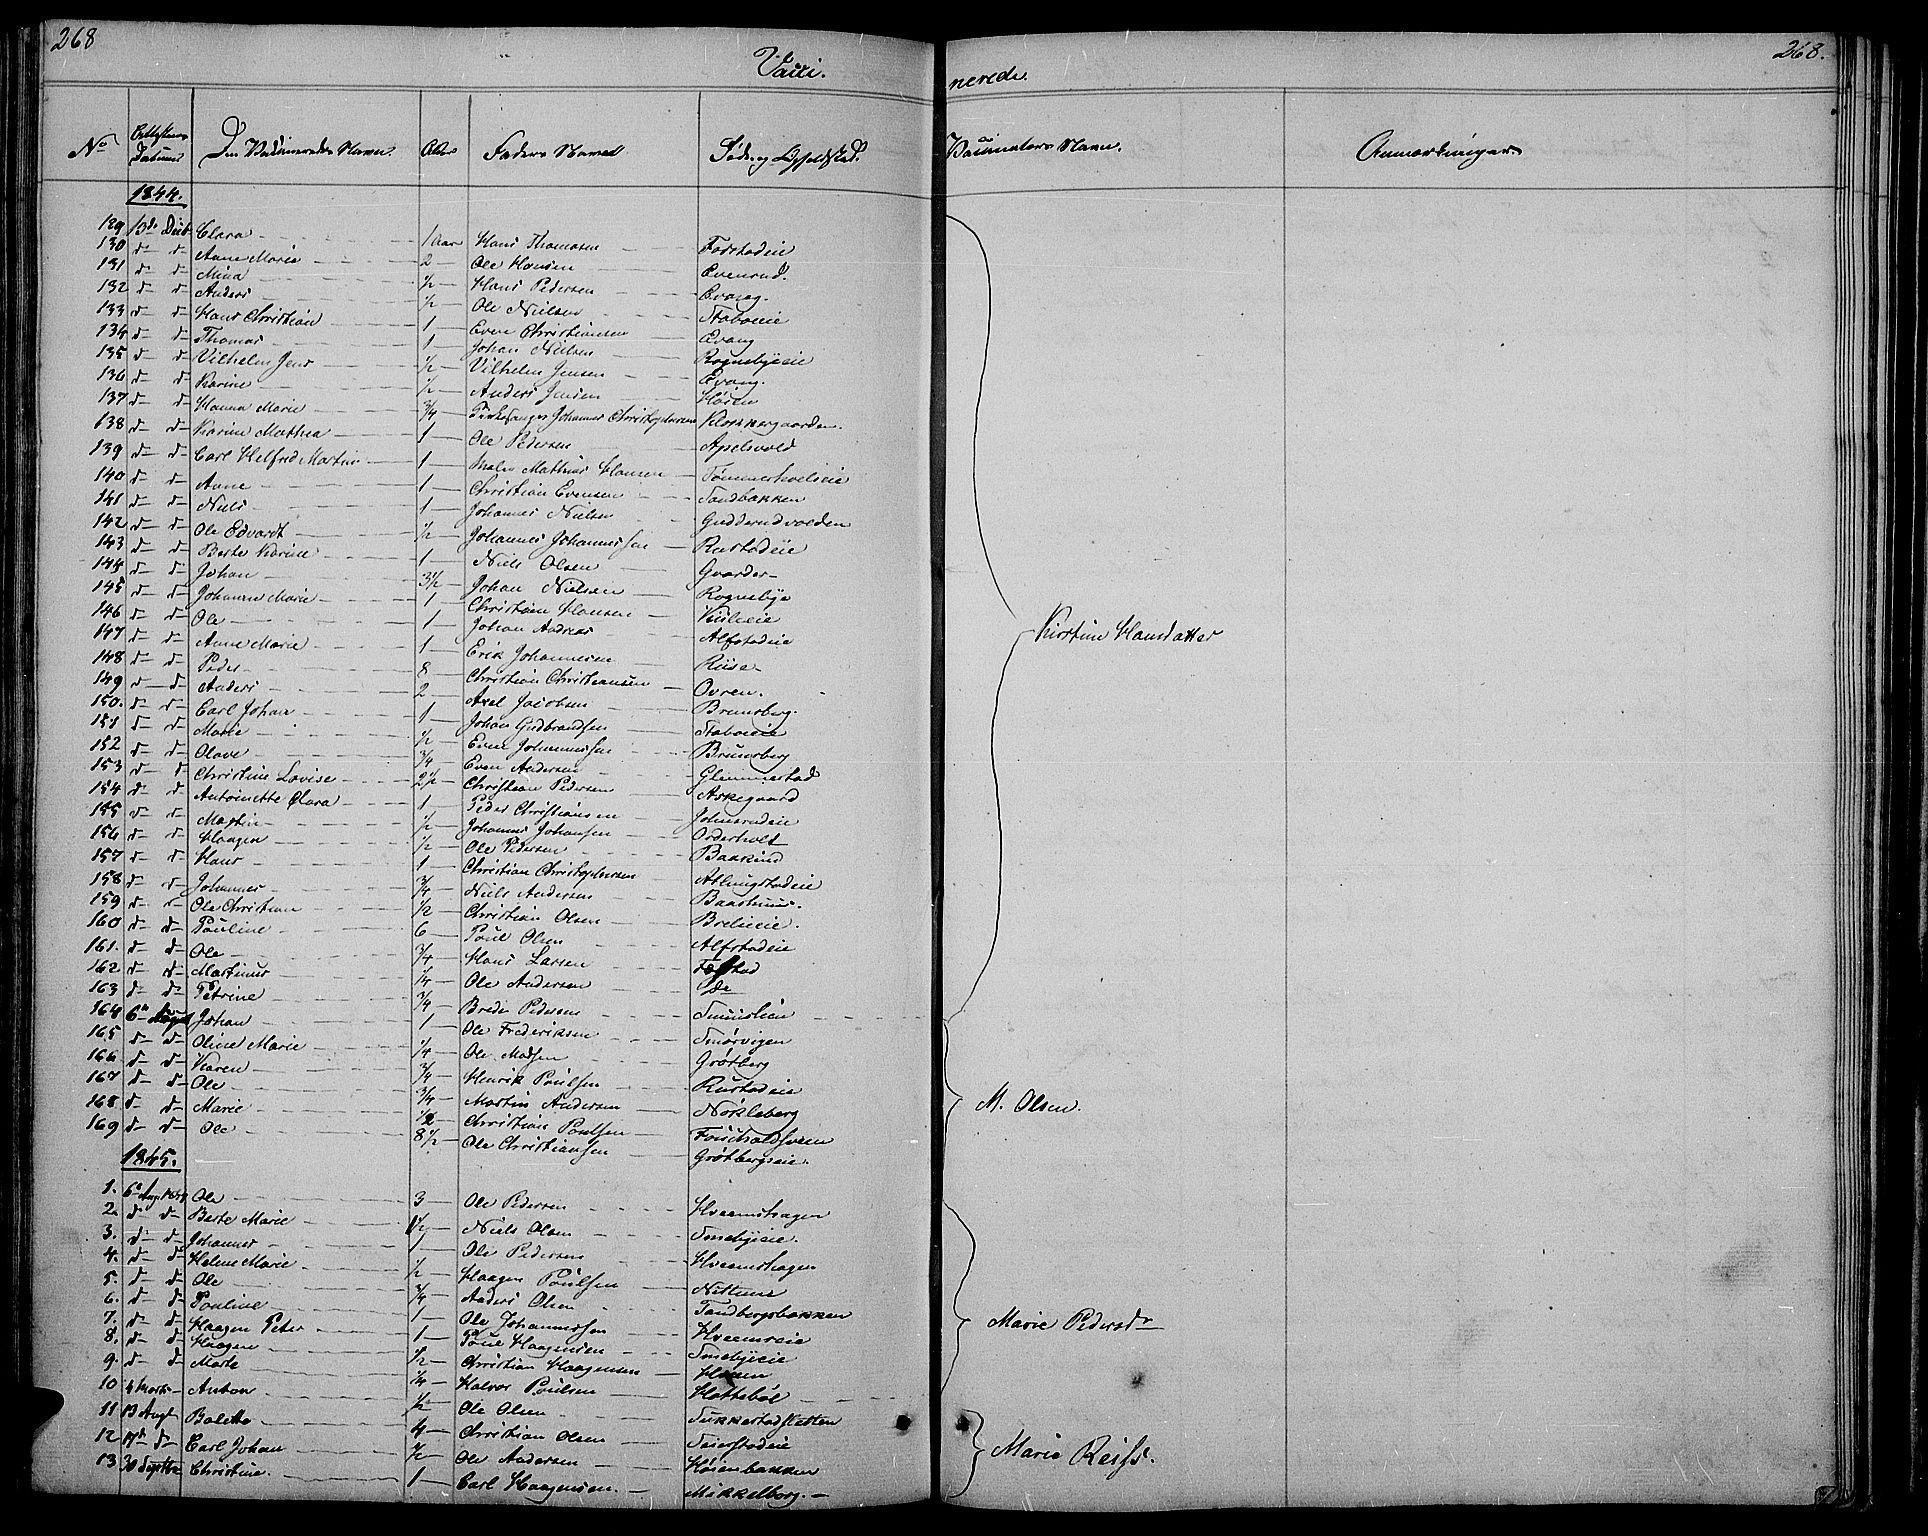 268
268.
Vacci.
nerede.
No Attestens Datum Den Vaccineredes Navn. Alder Faders Navn Føde og Opholdsted. Vaccinators Navn. Anmærkninger.
1844.
129 13de Decb Clara 1 Aar Hans Thomasen Fodstadeie
130 d— d— Anne Marie 2 Ole Hansen Evenrud.
131 d— d— Mina ½ Hans Pedersen Evang.
132 d— d— Anders ½ Ole Nielsen Staboeie
133 d— d— Hans Christian 1 Even Christiansen Evang
134 d— d— Thomas 1 Johan Nielsen Rognebyeie
135 d— d— Vilhelm Jens ½ Vilhelm Jensen Evang.
136 d— d— Karine ½ Anders Jensen Høien
137 d— d— Hanna Marie ¾ Kirkesanger Johannes Christophersen Klokkergaarden.
138 d— d— Karine Mathea 1 Ole Pedersen Apelsvold
139 d— d— Carl Helfred Martin 1 Mathias Hansen Tømmerhoelseie
140 d— d— Anne 1 Christian Evensen Sandbakken
141 d— d— Niels 1 Johannes Nielsen Gudderudvolden
142 d— d— Ole Edvardt ½ Johannes Johannessen Rustadeie
143 d— d— Berte Karine 1 Niels Olsen Gaarder
144 d— d— Johan 3½ Johan Nielsen Rognebye
145 d— d— Johanne Marie 1 Christian Hansen
146 d— d— Ole 1 Johan Andreas Alfstadeie
147 d— d— Anne Marie 1 Erik Johannesen Riise
148 d— d— Peder 8 Christian Christiansen Ovren.
149 d— d— Anders 2 Axel Jacobsen Brunsberg.
150. d— d— Carl Johan 1 Johan Gudbrandsen Staboeie
151 d— d— Marie ½ Even Johannessen Brunsberg
152 d— d— Olave ¾ Even Andersen Glemmestad
153 d— d— Christine Lovise 2½ Christian Pedersen Askegaard
154 d— d— Antoinette Clara 1 Peder Christiansen Johnsrudeie
155 d— d— Martin ½ Johannes Johansen Ouderholt
156 d— d— Haagen ½ Ole Pedersen Baakind
157 d— d— Hans 1 Christian Christophersen Athungstadeie
158 d— d— Johannes ¾ Niels Andersen
159 d— d— Ole Christian ½ Christian Olsen Brelieeie.
160 d— d— Pouline 6 Poul Olsen Alfstadeie
161. d— d— Ole ¾ Hans Larsen
162 d— d— Martinus ¼ Ole Andersen
163 d— d— Petrine ¾ Brede Pedersen
Kirstine Hansdatter
164 6te Johan 1 Ole Frederiksen Smørvigen
165 d— d— Oline Marie ¼ Ole Madsen Grøtberg
166 d— d— Karen ¾ Henrik Poulsen Rustadeie
167 d— d— Ole ¾ Martin Andersen Nøkleberg
168 d— d— Marie ½ Christian Poulsen
169 d— d— Ole 8½ Ole Christiansen Grøtbergseie.
M. Olsen.
1845.
1. 6te Aug 1844 Ole 3 Ole Pedersen Hveemshagen
2. d— d— Berte Marie 1½ Niels Olsen Smebyeie.
3. d— d— Johannes 1 Ole Pedersen Hveemshagen
4. d— d— Helene Marie ½ Haagen Poulsen
5. d— d— Ole ¾ Anders Olsen Sandbergsbakken
6. d— d— Pouline 1 Ole Johannessen Hveemseie
7. d— d— Haagen Peter 1 Poul Haagensen Smebyeie
8. d— d— Haagen ½ Christian Haagensen
9. d— d— Marte ¼ Halvor Poulsen Hattebøl
Marie Pedersdr
10 4 Marts Anton ½ Ole Olsen Sukkestadsletten
11 13 Augt Bolette 4 Christian Olsen Seierstadeie
12 17de d— Carl Johan ½ Ole Andersen Høienbakken
13 30 Septbr Christine. 1 Carl Haagensen. Mikkelborg.
Marie Reiss.